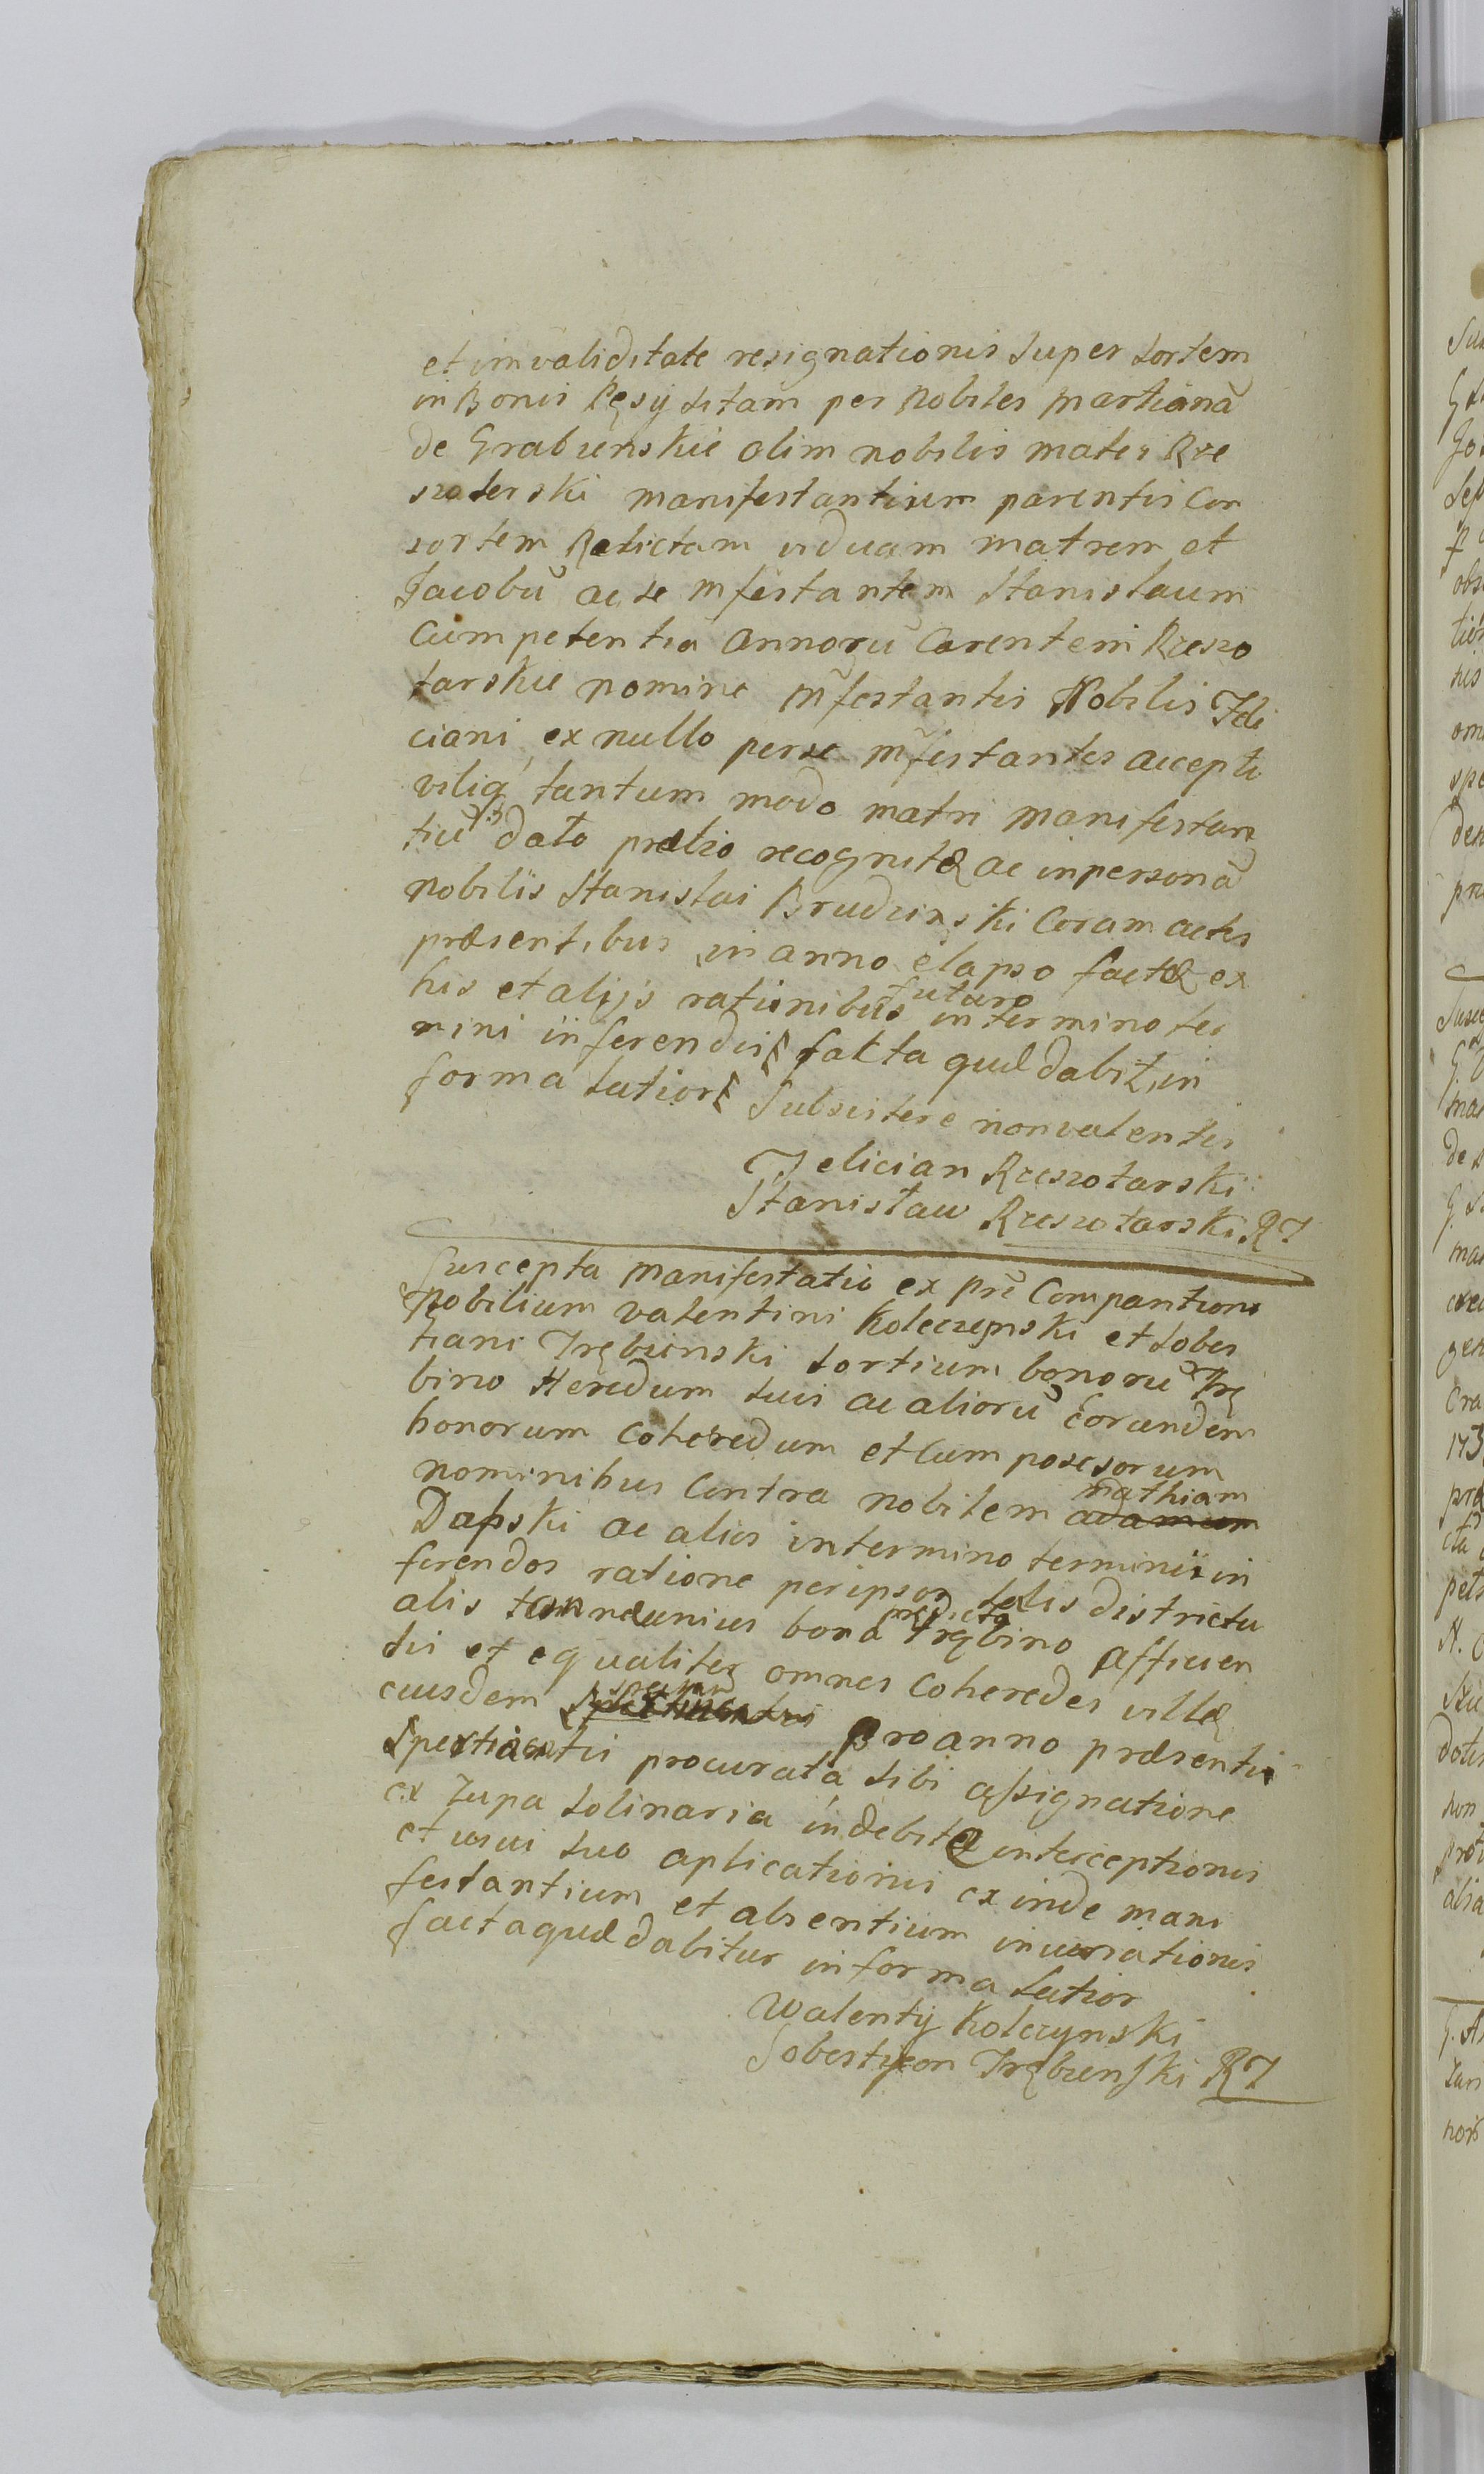 et invaliditate resignationis super sortem
in Bonis Pęsy sitam per Nobiles Martianã
de Grabienskie olim nobilis Mater Rze
szoterski manifestantium parentis Con
sortem Relictam viduam matrem et
Jacobũ ac se mfestantem Stanislaum
Cumpetentia annorũ Carentem Rzeszo
tarskie nomine m̃festantis Nobilis Feli
ciani ex nullo per se m̃festantes accepto
viliq tantum modo matri manifestan
tiũ dato prætio recognitæ ac in personã
nobilis Stanislai Brudzinski Coram actis
præsentibus in anno elapso factæ ex
his et alijs rationibus in futuro termino ter
mini inferendis fakta quæ dabit, in
forma latiori Subsistere non valentis
Felician Rzeszotarski
Stanisław Rzeszotarski RT
Suscepta Manifestatio ex prĩ Comparitione
Nobilium Valentini Koleczynski et Sobes
tiani Trębinski sortium bonorũ Trę
bino Heredum suis ac aliorũ Eorundem
bonorum Coheredum et Compossesorum
nominibus Contra nobilem adamum mathiam
Dąpski ac alios in termino terminis in
ferendos ratione per ipsos salis districtu
alis bona prædicta Trębino afficien
tis et equaliter omnes Coheredes villæ
eiusdem pro anno præsenti
Spectantis procurata sibi assignatione
ex Zupa Solinaria indebitæ interceptionis
et usui suo aplicationis exinde mani
festantium et absentium iniuriationis
facta quæ dabitur in forma latior
Walenty Kolczynski
Sobestyan Trębinski RT